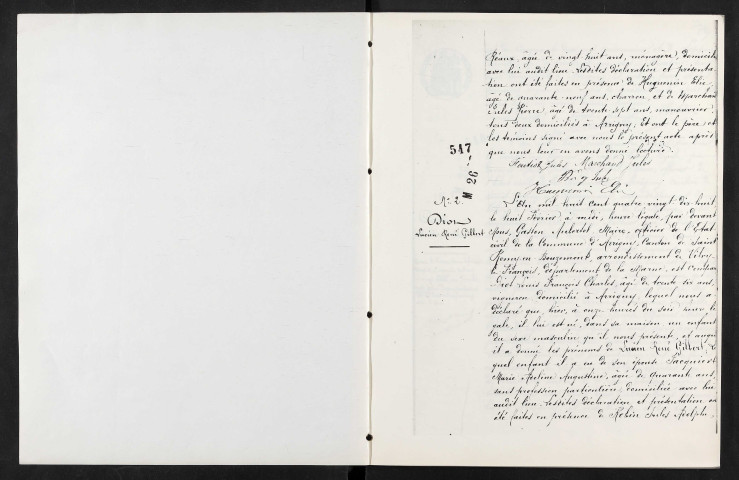 âgée de vingt huit ans, ménagère, domiciliée
avec lui audit lieu. Lesdites déclaration et présenta-
tion ont été faites en présence de Huguenin Elie,
âgé de quarante-neuf ans, charron, et de Marchand
Jules Pierre âgé de trente sept ans, manouvrier,
tous deux domiciliés à Arrigny, Et ont le père et
les témoins signé avec nous le présent acte après
que nous leur en avons donné lecture.
Jules Marchand Jules
Huguenin Elie
547
M 26
N° 2.
Lucien René Gilbert
L'an mil huit cent quatre vingt-dix huit
le huit Février, à midi, heure légale, par devant
Nous, Gaston Maire, officier de l'Etat
civil de la Commune d'Arrigny, Canton de Saint
Remy en Bouzemont, arrondissement de Vitry
le François, département de la Marne, est comparu
François Charles, âgé de trente six ans,
domicilié à Arrigny, lequel nous a
déclaré que, hier, à onze heures du soir heure lé-
gale, il lui est né, dans sa maison un enfant
du sexe masculin qu'il nous présente, et auquel
il a donné les prénoms de Lucien René Gilbert, le-
quel enfant il a eu de son épouse
Marie Augustine, âgée de quarante ans,
sans profession particulière, domiciliée avec lui
audit lieu. Lesdites déclaration et présentation ont
été faites en présence de Robin Jules Adolphe,